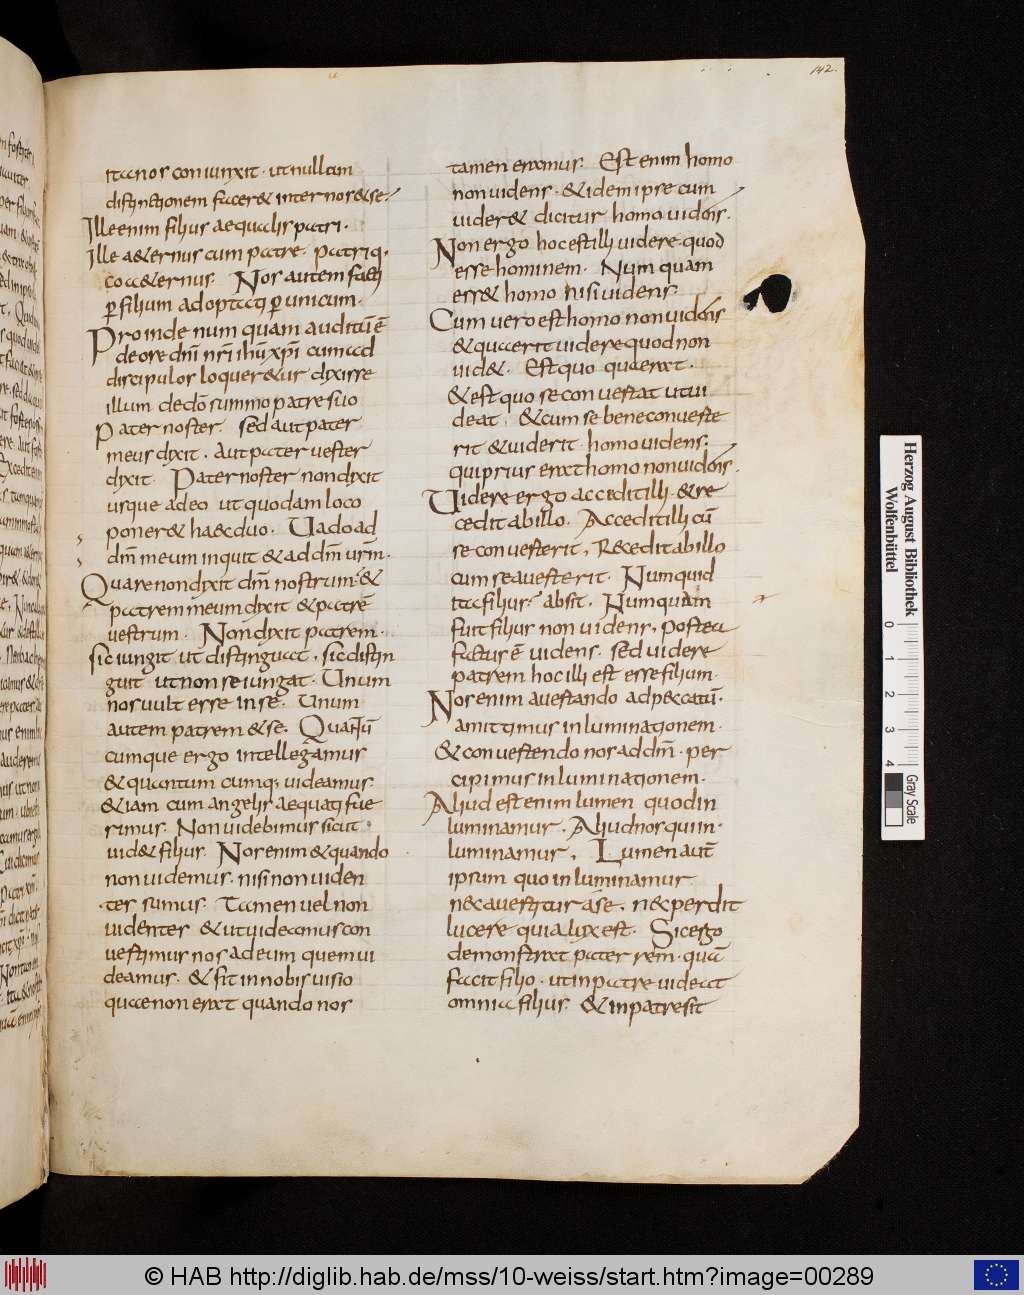 142.
ita nos coniunxit · ut nullam
distinctionem facer& inter nos & se ·
Ille enim filius aequalis patri ·
Ille a&ernus cum patre · patri q·
coa&ernus · Nos autem facti
ꝑ filium adoptati ꝑ unicum ·
Proinde numquam auditū ē
de ore dn̄i nr̄i ihū xp̄i cum ad
discipulos loquer&ur dyxisse
illum de dō summo patre suo
Pater noster · sed aut pater
meus dyxit · Aut pater uester
dyxit · Pater noster non dyxit
usque adeo ut quodam loco
poner& haec duo · Uado ad
dm̄ meum inquit & ad dm̄ urm̄ ·
Quare non dyxit dm̄ nostrum · &
patrem meum dyxit & patrē
uestrum · Non dyxit patrem ·
sic iungit ut distinguat · sic distin
guit ut non seiungat · Unum
nos uult esse in se · Unum
autem patrem & se · Quantū
cumque ergo intellegamus
& quantum cumq; uideamus ·
& iam cum angelis aequati fue
rimus · Non uidebimus sicut
uid& filius · Nos enim & quando
non uidemus · nisi non uiden
ter sumus · Tamen uel non
uidenter & ut uideamus con
uertimur nos ad eum quem ui
deamus · & fit in nobis uisio
quae non erat quando nos
tamen eramus · Est enim homo
non uidens · & idem ipse cum
uider& dicitur homo uidens ·
Non ergo hoc est illi uidere quod
esse hominem · Numquam
ess& homo nisi uidens ·
Cum uero est homo non uidens
& quaerit uidere quod non
uid& · Est quo quaerat ·
& est quo se conuertat ut ui
deat · & cum se bene conuerte
rit & uiderit · homo uidens ·
qui prius erat homo non uidens ·
Uidere ergo accedit illi · & re
cedit ab illo · Accedit illi cū
se conuerterit · Recedit ab illo
cum se auerterit · Numquid
ita filius · absit · Numquam
fuit filius non uidens · postea
factus ē uidens · sed uidere
patrem hoc illi est esse filium ·
Nos enim auertendo ad peccatū ·
amittimus inluminationem ·
& conuertendo nos ad dm̄ · per
cipimus inluminationem ·
Aliud est enim lumen quo in
luminamur · Aliud nos qui in
luminamur · Lumen aut̄
ipsum quo inluminamur
nec auertitur a se · nec perdit
lucere quia lux est · Sic ergo
demonstrat pater rem · quā
facit filio · ut in patre uideat
omnia filius · & in patre sit
Herzog August Bibliothek
Wolfenbüttel
0 1 2 3 4
Gray Scale
© HAB http://diglib.hab.de/mss/10-weiss/start.htm?image=00289